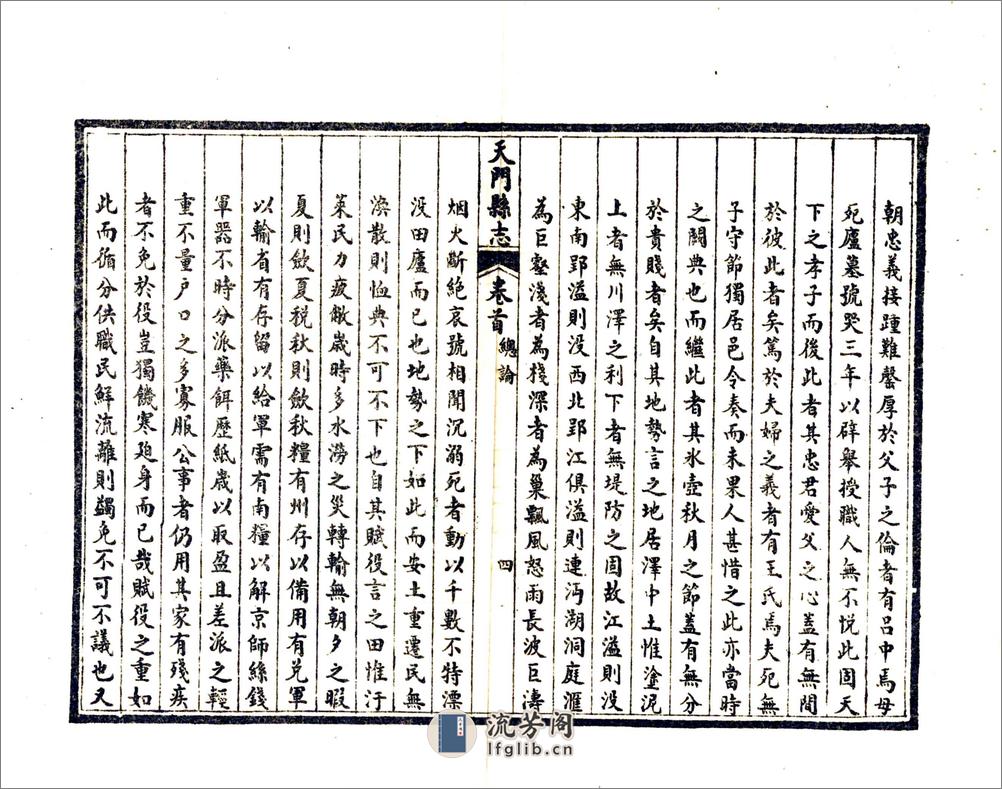 朝忠義接踵難罄厚於父子之倫者有呂中焉母
死廬墓號哭三年以辟舉授職人無不悅此固天
下之孝子而後此者其忠君愛父之心蓋有無間
於彼此者矣篤於夫婦之義者有王氏焉夫死無
子守節獨居邑令奏而未果人甚惜之此亦當時
之闕典也而繼此者其氷壺秋月之節蓋有無分
於貴賤者矣自其地勢言之地居澤中土惟塗泥
上者無川澤之利下者無堤防之固故江溢則没
東南郢溢則没西北郢江俱溢則連沔湖洞庭滙
為巨壑淺者為棧深者為巢飄風怒雨長波巨濤
天門縣志
卷首
總論
四
烟火斷絶哀號相聞沉溺死者動以千數不特漂
没田廬而已也地勢之下如此而安土重遷民無
渙散則恤典不可不下也自其賦役言之田惟汙
萊民力疲敝歲時多水澇之災轉輸無朝夕之暇
夏則斂夏稅秋則斂秋糧有州存以備用有兌軍
以輸省有存留以給軍需有南糧以解京師絲錢
軍器不時分派藥餌歷紙歲以取盈且差派之輕
重不量户口之多寡服公事者仍用其家有殘疾
者不免於役豈獨饑寒廹身而已哉賦役之重如
此而循分供職民鮮流離則蠲免不可不議也又
流芳阁
lfglib.cn